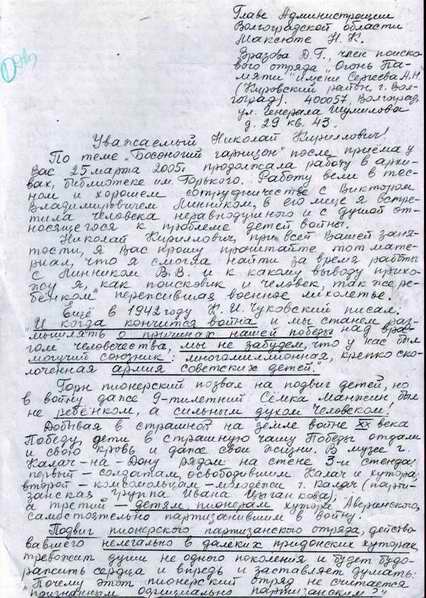 Главе Администрации
Волгоградской области
Максюте Н.К.
Вразова Д.Г., член поиско-
вого отряда "Огонь Па-
мяти" имени Сергеева А.Н.
(Кировский район г. Вол-
гоград). 400057, Волгоград,
ул. Генерала Шумилова
д. 29 кв. 43.
Уважаемый Николай Кириллович!
По теме "Босоногий гарнизон" после приёма у
Вас 25 марта 2005г продолжала работу в архи-
вах, библиотеке им. Горького. Работу вели в тес-
ном и хорошем сотрудничестве с Виктором
Владимировичем Линником, в его лице я встре-
тила человека неравнодушного и с душой от-
носящегося к проблеме детей войны.
Николай Кириллович, при всей Вашей заня-
тости, я Вас прошу прочитайте тот мате-
риал, что я смогла найти за время работы
с Линником В.В. и к какому выводу прихо-
жу я, как поисковик и человек, так же ре-
бёнком перенёсшая военное лихолетье.
Ещё в 1942 году К.И. Чуковский писал,
"И когда кончится война и мы станем раз-
мышлять о причинах нашей победы над вра-
гом человечества, мы не забудем, что у нас был
могучий союзник: многомиллионная, крепко спло-
ченная армия советских детей."
Горн пионерский позвал на подвиг детей, но
в войну даже 9-тилетний Сёмка Манжин был
не ребёнком, а сильным духом Человеком!
Добывая в страшной на земле войне XX века
Победу, дети в страшную чашу Победы отдали
и свою кровь и даже свои жизни. В музее г.
Калач-на-Дону рядом на стене 3-и стенда:
первый - солдатам, освободившим Калач и хутора,
второй - комсомольцам-молодёжи г. Калач (парти-
занская группа Ивана Цыганкова),
а третий - детям пионерам хутора Аверинского,
самостоятельно партизанившим в войну.
Подвиг пионерского партизанского отряда, действо-
вавшего нелегально в далёких придонских хуторах,
тревожит души не одного поколения и будет будо-
ражить сердца и впредь и заставляет думать:
"Почему этот пионерский отряд не считается
признанным официально партизанским?"